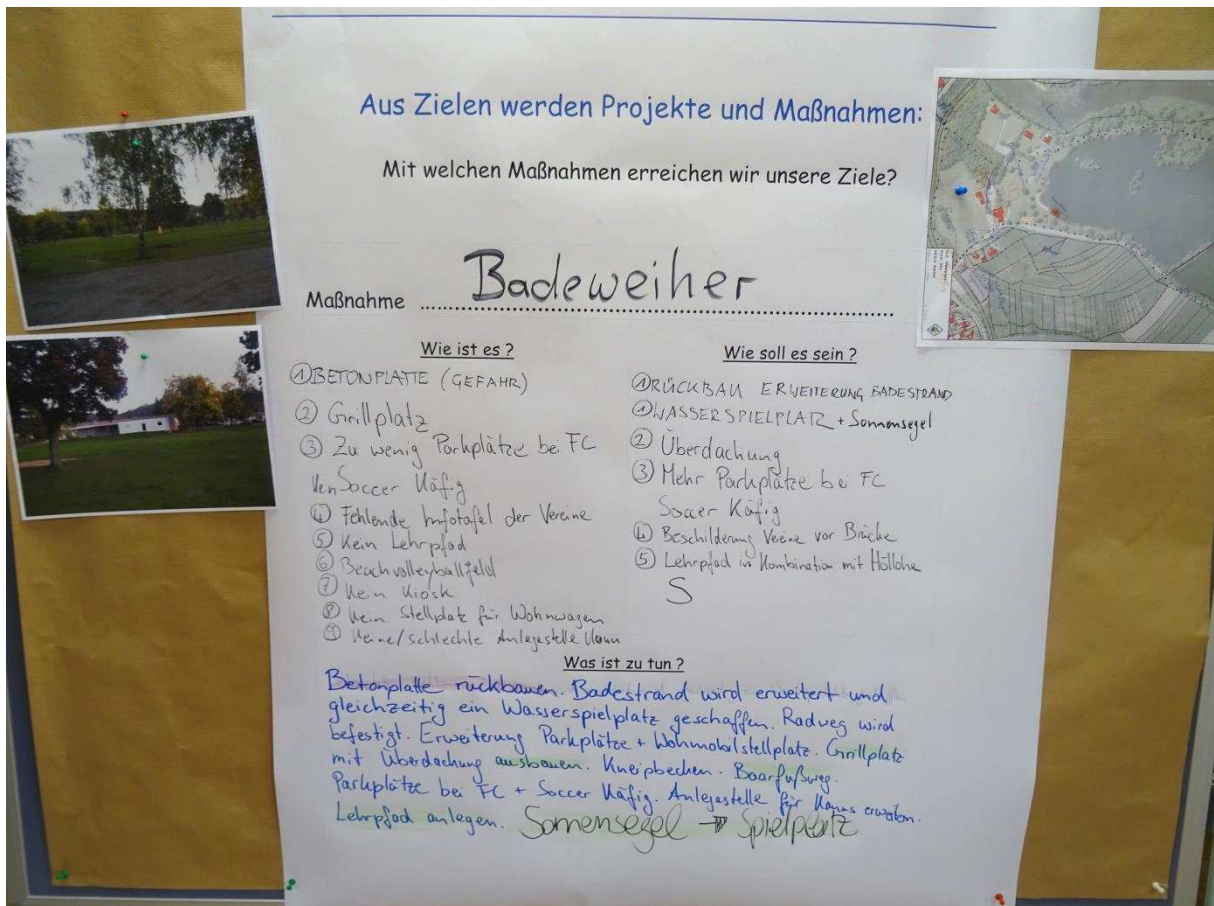 Aus Zielen werden Projekte und Maßnahmen:
Mit welchen Maßnahmen erreichen wir unsere Ziele?
Maßnahme Badeweiher
Wie ist es ?
① BETONPLATTE (GEFAHR)
② Grillplatz
③ Zu wenig Parkplätze bei FC
Soccer Käfig
④ Fehlende Infotafel der Vereine
⑤ Kein Lehrpfad
⑥ Beachvolleyballfeld
⑦ Kein Kiosk
⑧ Kein Stellplatz für Wohnwagen
⑨ Keine/schlechte Anlegestelle Kanu
Wie soll es sein ?
① RÜCKBAU ERWEITERUNG BADESTRAND
① WASSERSPIELPLATZ + Sonnensegel
② Überdachung
③ Mehr Parkplätze bei FC
Soccer Käfig
④ Beschilderung Vereine vor Brücke
⑤ Lehrpfad in Kombination mit Höllohe
S
Was ist zu tun ?
Betonplatte rückbauen. Badestrand wird erweitert und
gleichzeitig ein Wasserspielplatz geschaffen. Radweg wird
befestigt. Erweiterung Parkplätze + Wohmobilstellplatz. Grillplatz
mit Überdachung ausbauen. Kneipbecken. Baarfußweg.
Parkplätze bei FC + Soccer Käfig. Anlegestelle für Kanus erweitern.
Lehrpfad anlegen. Sonnensegel → Spielplatz